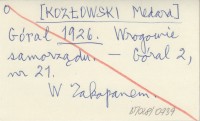 O [KOZŁOWSKI Medard]
Góral 1926. Wrogowie
samorządu. — Góral 2,
nr 21.
W Zakopanem.